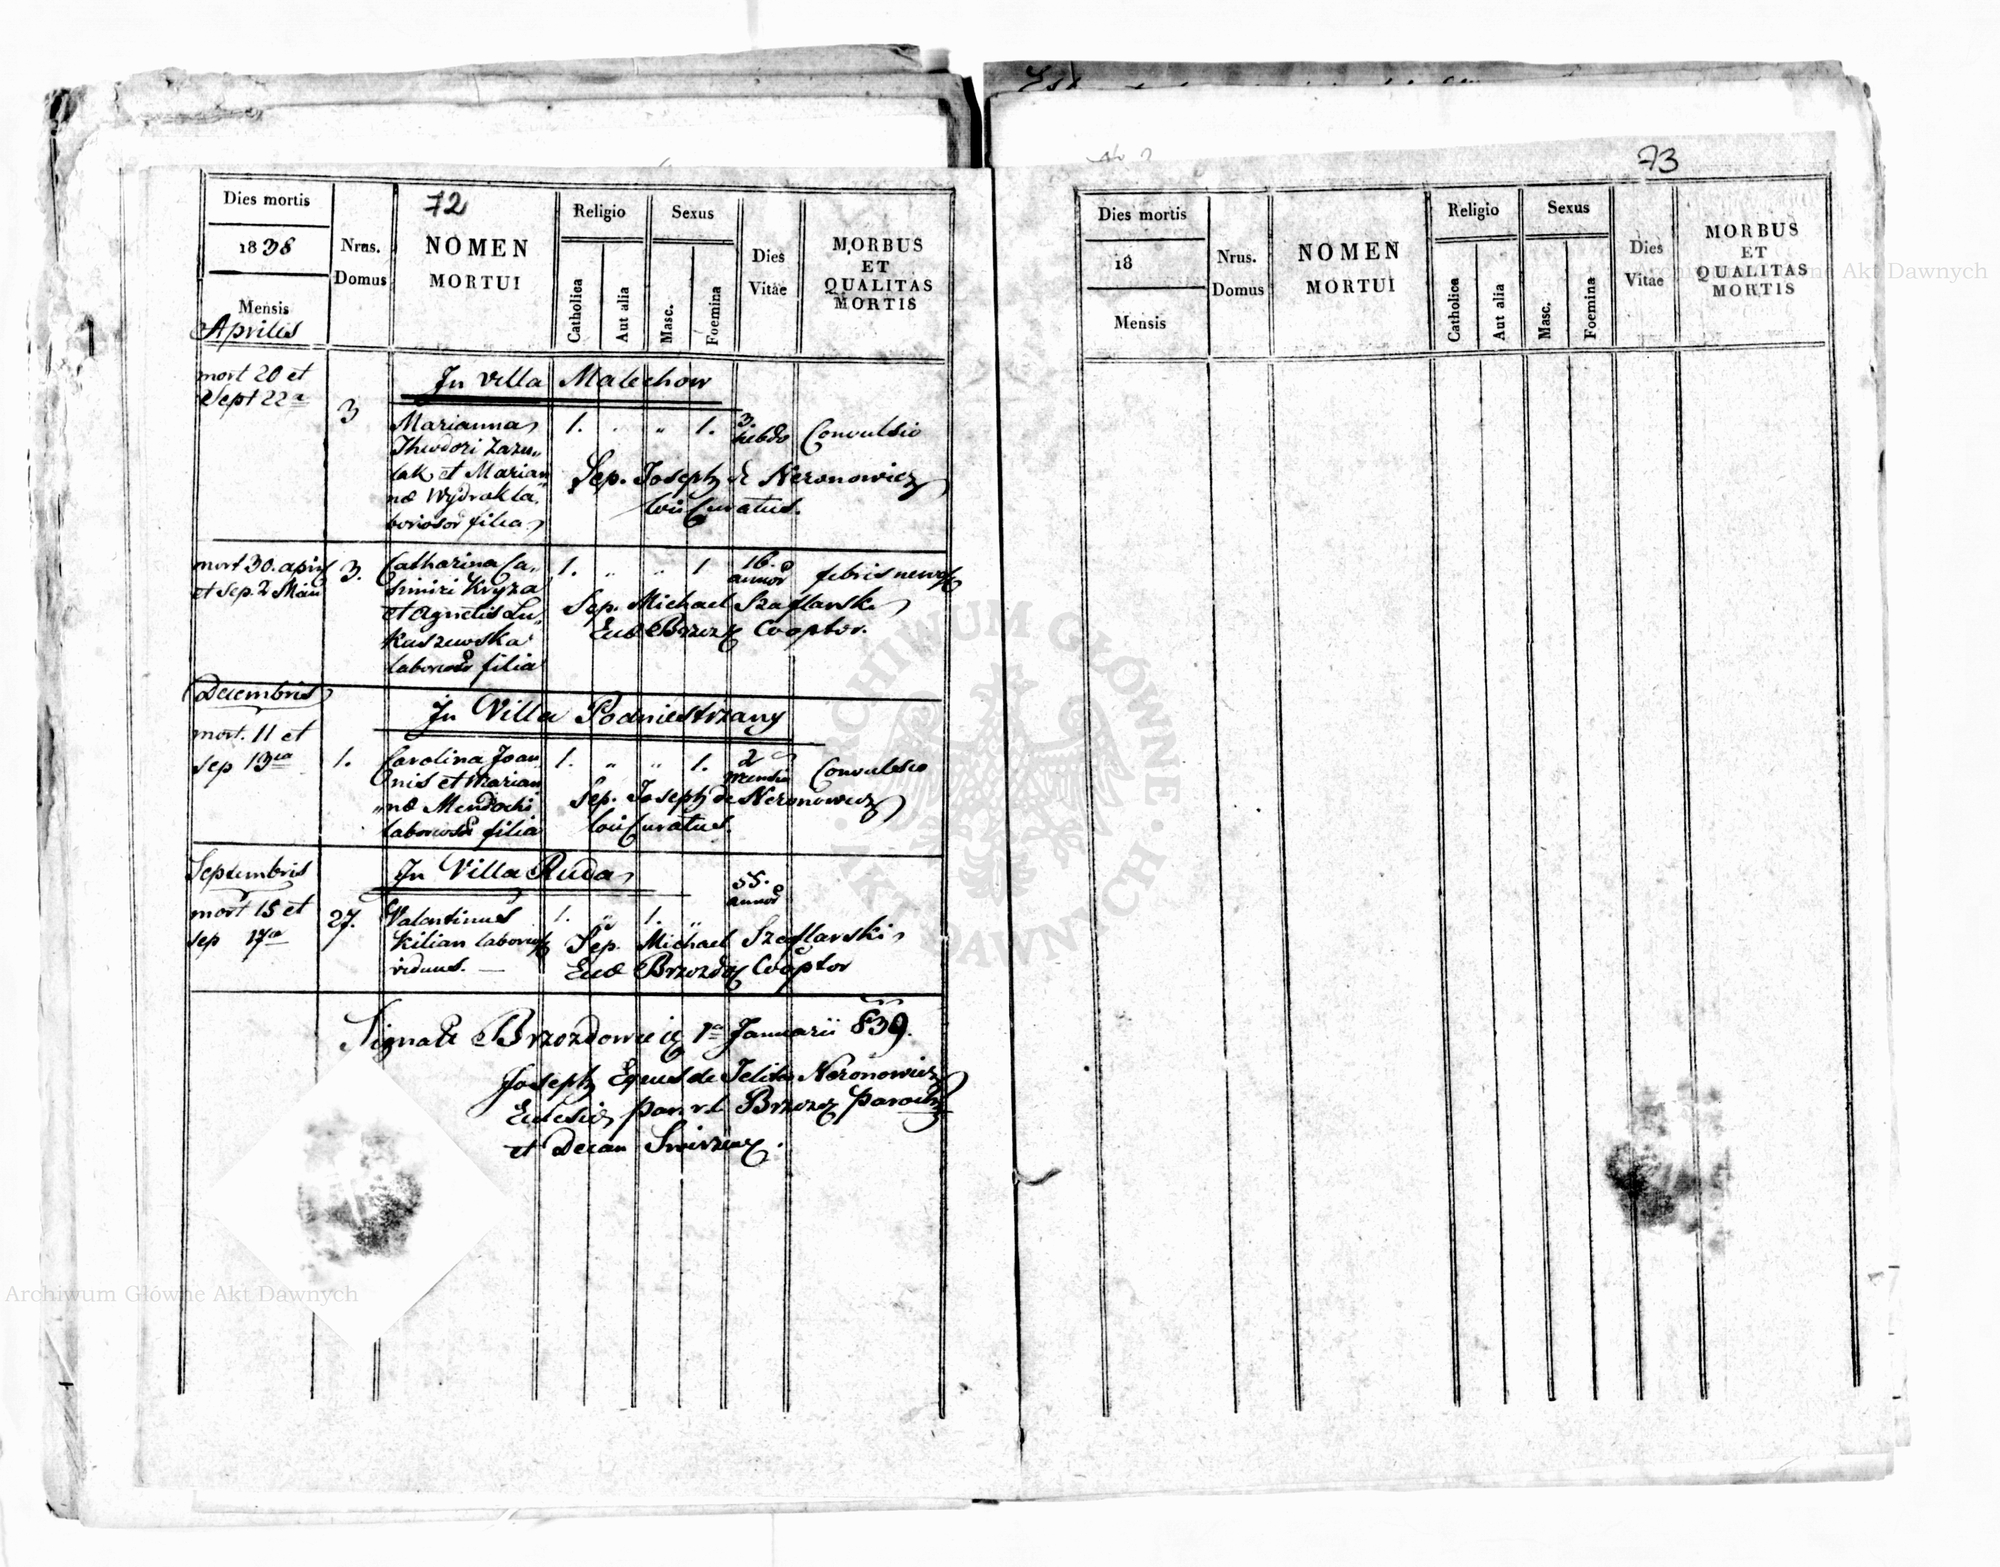 72
Dies mortis
1838
Mensis
Aprilis
Nrus.
Domus
NOMEN
MORTUI
Religio
Catholica
Aut alia
Sexus
Masc.
Foemina
Dies
Vitae
MORBUS
ET
QUALITAS
MORTIS
In villa Malechow
mort 20 et
Sept 22a
3
Marianna
Theodori Zazu„
lak et Marian„
næ Wydrak la„
boriosor filia
1. „ „ 1.
3.
hebdo
Convulsio
Sep. Joseph de Neronowicz
Curatus.
mort 30. april
et Sep. 2 Maii
3.
Catharina Ca„
simiri Kryza
et Agnetis Lu„
kaszewska
filia
1. „ „ 1
16.
annor
febris nervosa
Sep. Michael Szaflarski
Cooptor.
Decembris
In Villa Podniestrzany
mort. 11 et
sep 13ia
1.
Carolina Joan„
nis et Marian„
næ Mendochi
filia
1. „ „ 1.
2
Convulsio
Sep. Joseph de Neronowicz
Curatus.
Septembris
In Villa Ruda
mort 15 et
sep 17a
27.
Valentinus
Kilian
viduus. —
1. „ 1. „
55.
annor
Sep. Michael Szaflarski
Cooptor
Brzozdowce 1a Januarii 839.
Joseph Eques de Jelita Neronowicz
et Decan
73
Dies mortis
18
Mensis
Nrus.
Domus
NOMEN
MORTUI
Religio
Catholica
Aut alia
Sexus
Masc.
Foemina
Dies
Vitae
MORBUS
ET
QUALITAS
MORTIS
Archiwum Główne Akt Dawnych
ARCHIWUM GŁÓWNE
AKT DAWNYCH
Archiwum Główne Akt Dawnych